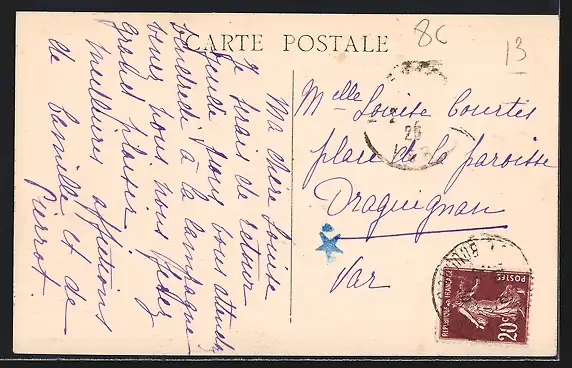 CARTE POSTALE
8C
13
Ma chère Louise
Je serais de retour
jeudi nous vous attendez
vendredi à la campagne
venez nous nous ferez
grand plaisir
meilleurs affections
de Camille et de
Pierrot
Melle Louise Courtès
place de la paroisse
Draguignan
Var
26
REPUBLIQUE FRANÇAISE
POSTES
20c